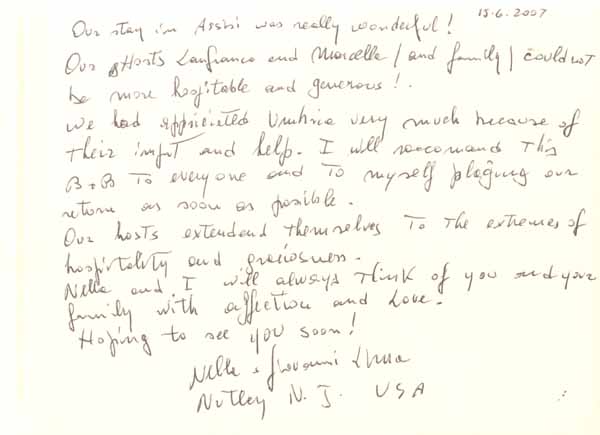 15.6.2007
Our stay in Assisi was really wonderful!
Our Hosts Lanfranco and Marcella (and family) could not
be more hospitable and generous!
We had appriciated Umbria very much because of
their input and help. I will reccomand this
B+B to everyone and to myself our
return as soon as possible.
Our hosts extendend themselves to the extremes of
hospitality and graciosness.
Nella and I will always think of you and your
family with affection and love.
Hoping to see you soon!
Nella e Giovanni
Nutley N.J. USA